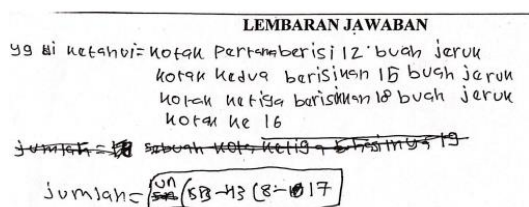 LEMBARAN JAWABAN
yg di ketahui = kotak pertama berisi 12 buah jeruk
kotak kedua berisikan 15 buah jeruk
kotak ketiga berisikan 18 buah jeruk
kotak ke 16
jumlah = sebuah kotak ketiga 19
jumlah = Un